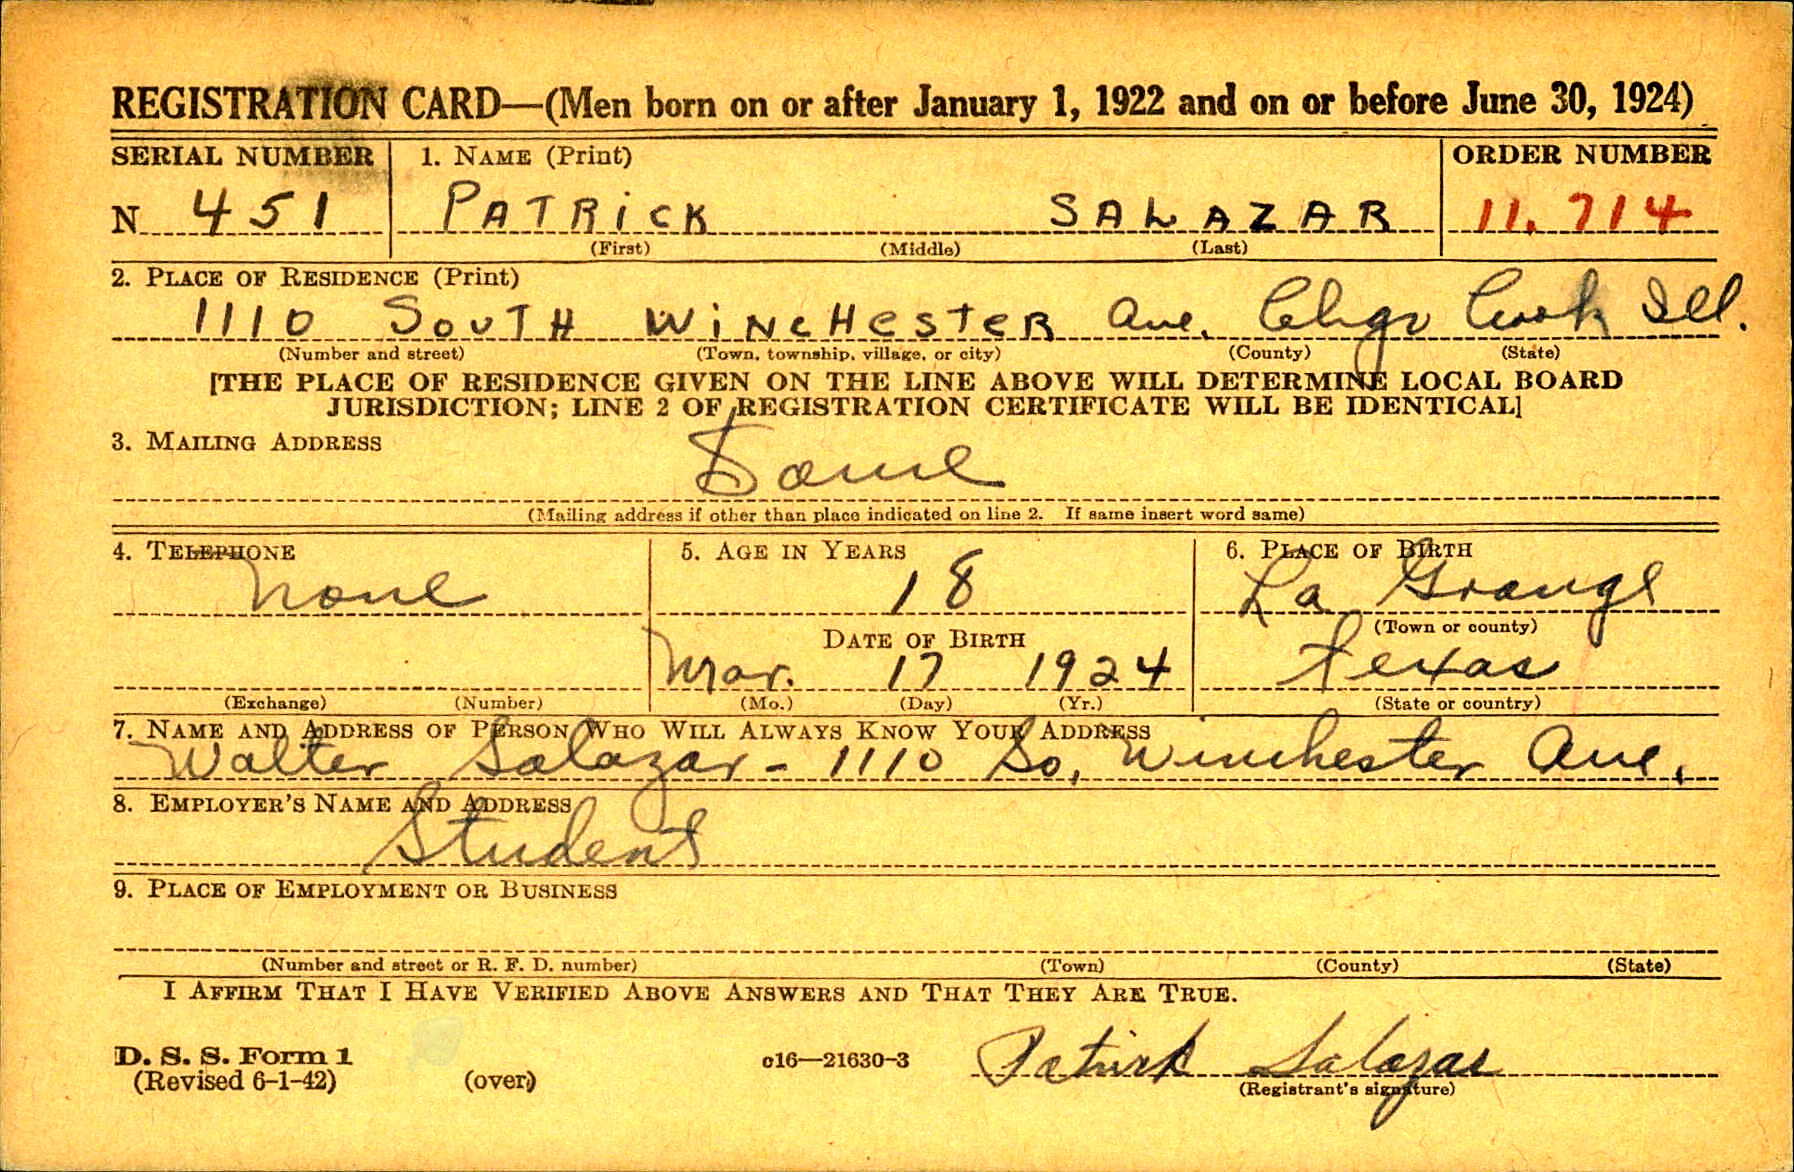 REGISTRATION CARD—(Men born on or after January 1, 1922 and on or before June 30, 1924)
SERIAL NUMBER 1. NAME (Print) ORDER NUMBER
N 451 PATRICK SALAZAR 11,714
(First) (Middle) (Last)
2. PLACE OF RESIDENCE (Print)
1110 SOUTH WINCHESTER Ave. Chgo Cook Ill.
(Number and street) (Town, township, village, or city) (County) (State)
[THE PLACE OF RESIDENCE GIVEN ON THE LINE ABOVE WILL DETERMINE LOCAL BOARD
JURISDICTION; LINE 2 OF REGISTRATION CERTIFICATE WILL BE IDENTICAL]
3. MAILING ADDRESS
Same
(Mailing address if other than place indicated on line 2. If same insert word same)
4. TELEPHONE 5. AGE IN YEARS 6. PLACE OF BIRTH
None 18 La Grange
(Town or county)
DATE OF BIRTH
Mar. 17 1924 Texas
(Exchange) (Number) (Mo.) (Day) (Yr.) (State or country)
7. NAME AND ADDRESS OF PERSON WHO WILL ALWAYS KNOW YOUR ADDRESS
Walter Salazar - 1110 So. Winchester Ave.
8. EMPLOYER'S NAME AND ADDRESS
Student
9. PLACE OF EMPLOYMENT OR BUSINESS
(Number and street or R. F. D. number) (Town) (County) (State)
I AFFIRM THAT I HAVE VERIFIED ABOVE ANSWERS AND THAT THEY ARE TRUE.
D. S. S. Form 1
(Revised 6-1-42) (over) c16—21630-3 Patrick Salazar
(Registrant's signature)